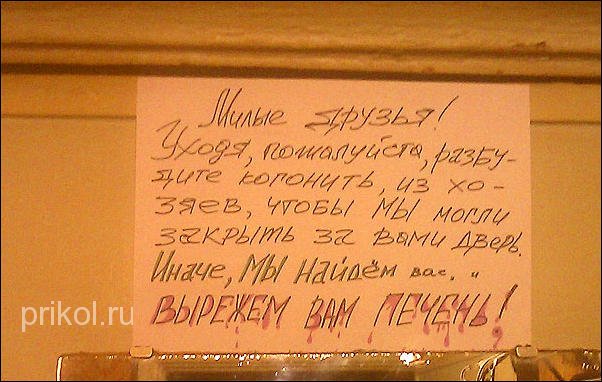 Милые друзья!
Уходя, пожалуйста, разбу-
дите когонить, из хо-
зяев, чтобы мы могли
закрыть за вами дверь.
Иначе, мы найдём вас, и
ВЫРЕЖЕМ ВАМ ПЕЧЕНЬ!
prikol.ru